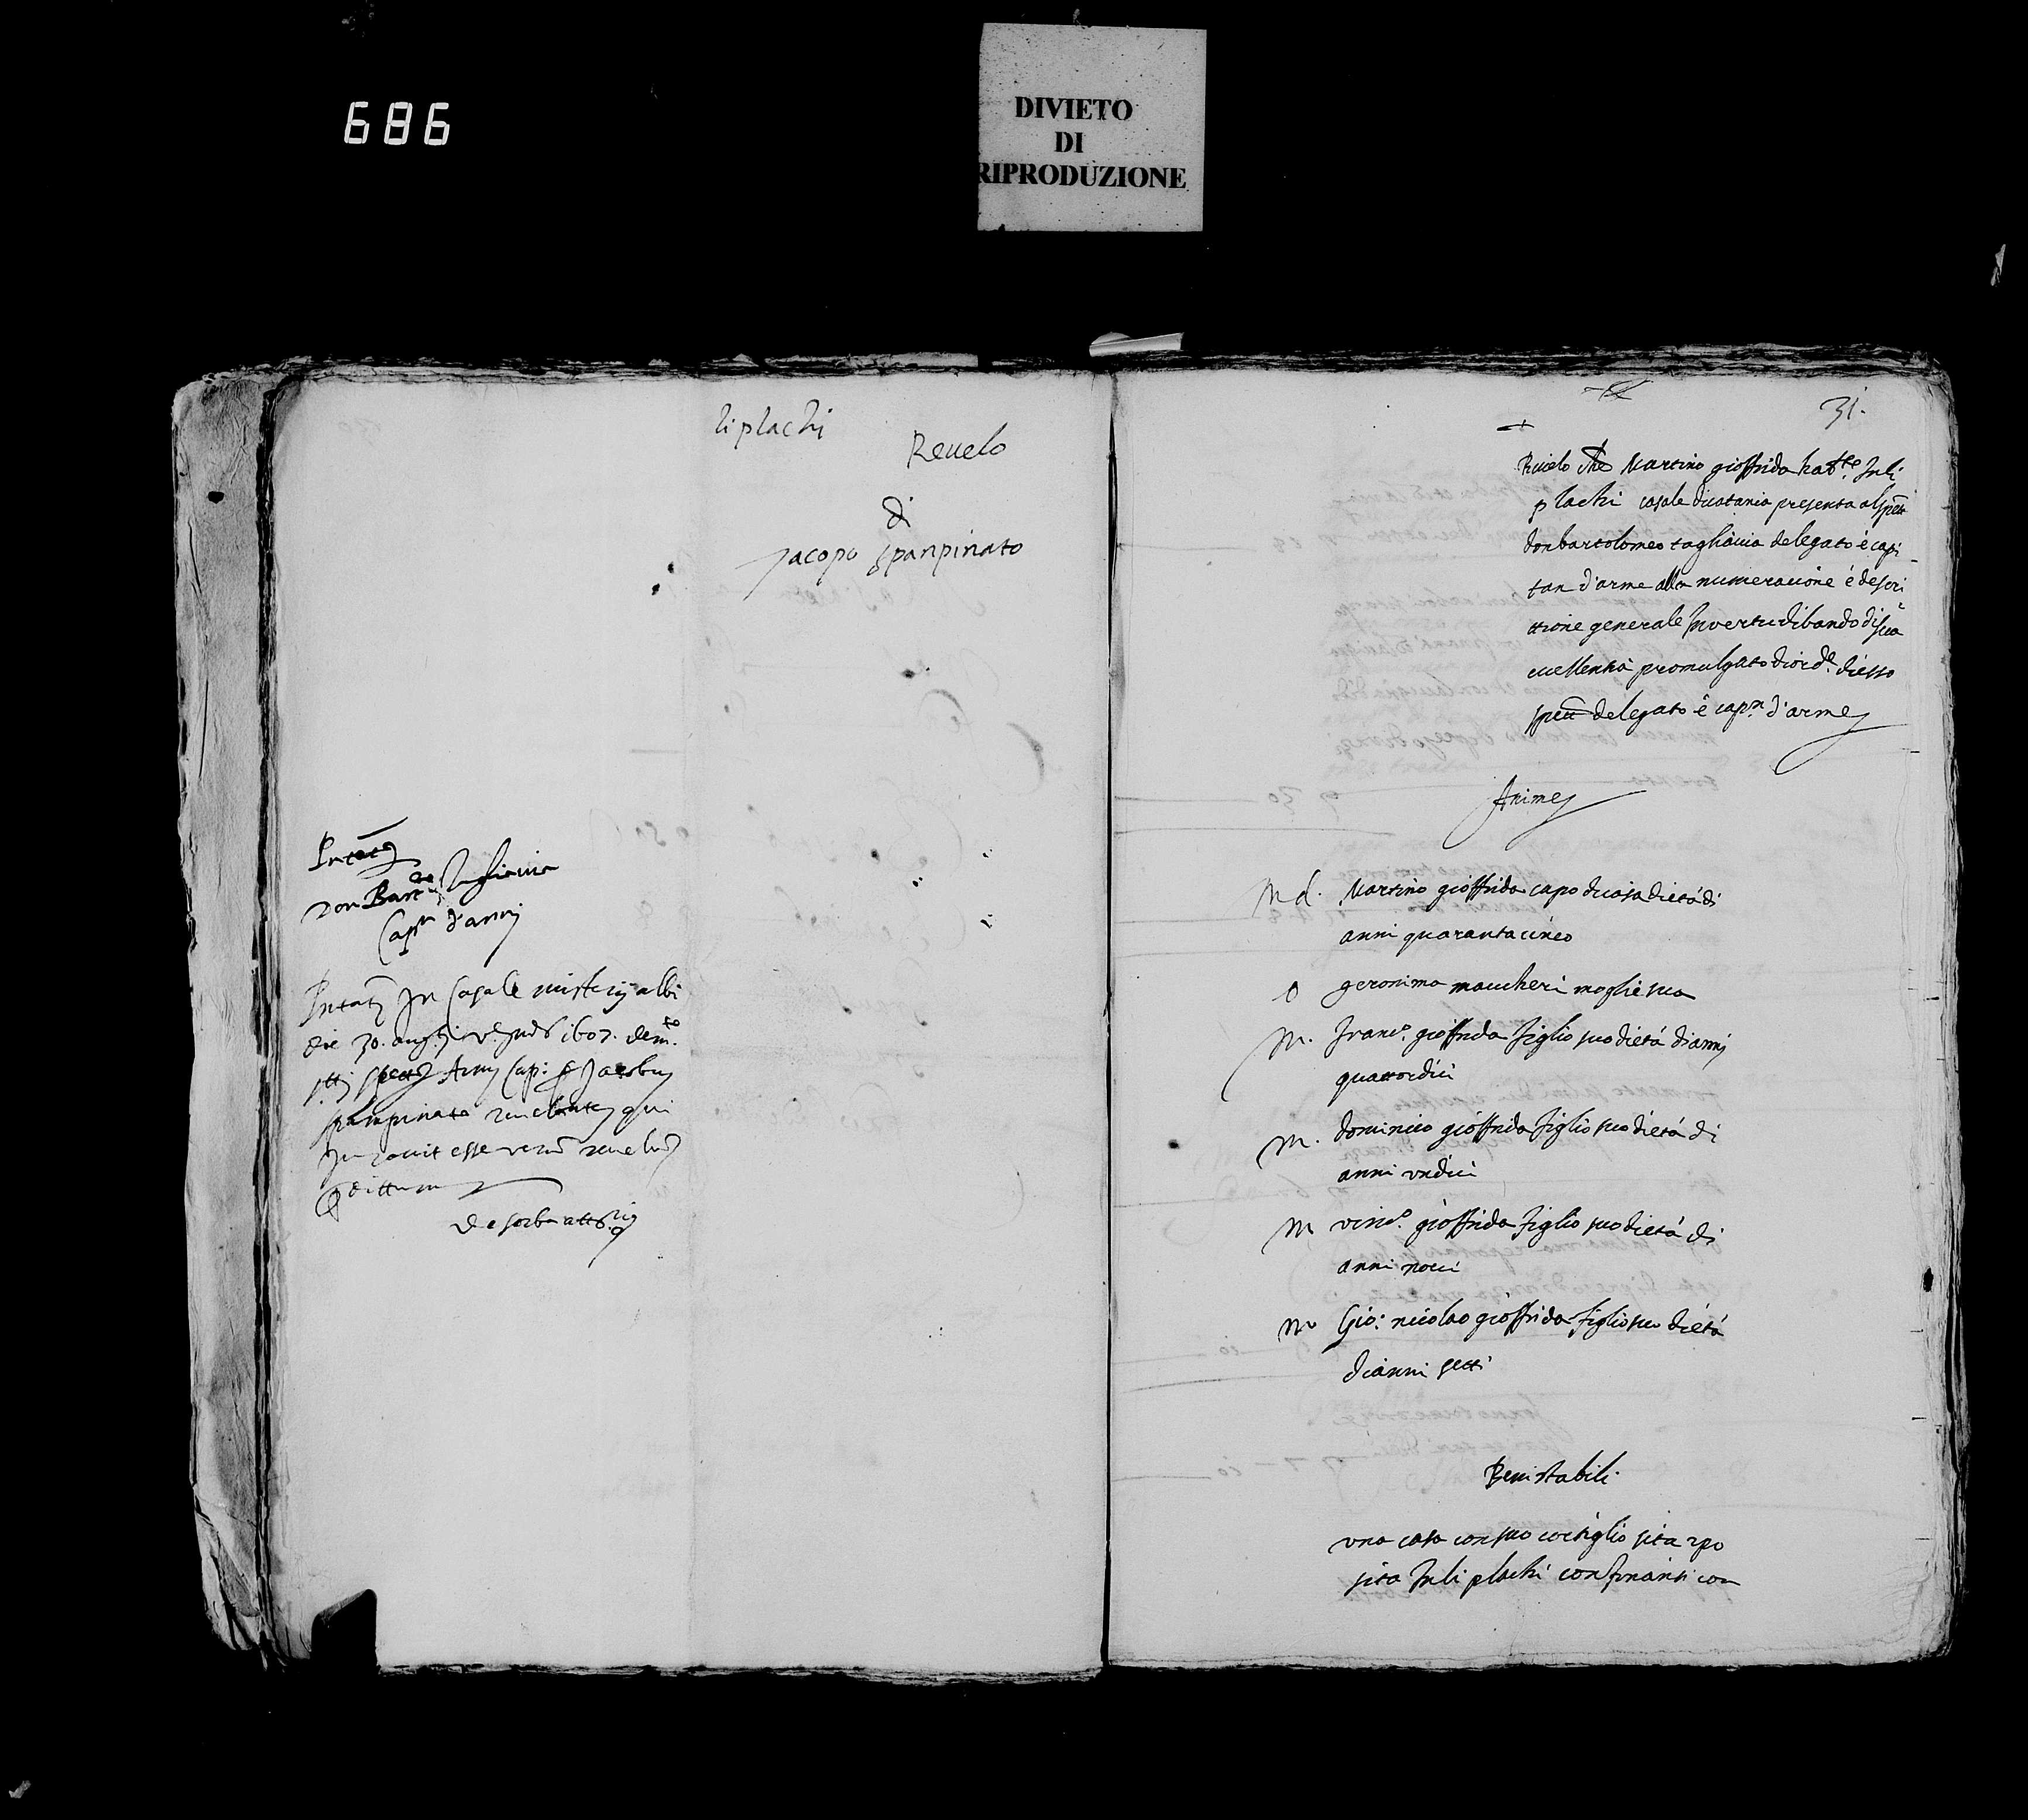 686
DIVIETO
DI
RIPRODUZIONE
li plachi
Revelo
di
Jacopo spanpinato
Don Bart.eo tagliavia
Cap.n d'armi
In Casale misterij albi
die 30. aug.ti v.e Ind.s 1607. de m.to
Arm. Cap: Jacobus
spampinato revelantes qui
Juravit esse verum
dittum
31.
Rivelo che Martino gioffrida hab.te In li
plachi casale di catania presenta al spett.
don bartolomeo tagliavia delegato è capi
tan d'arme alla numeracione é descri
ttione generale In vertu di bando di sua
eccellentia promulgato di ord.e di esso
spett. delegato è cap.n d'arme
Anime
M d. Martino gioffrida capo di casa di età di
anni quaranta cinco
o geronima maucheri moglie sua
M. Franc.o gioffrida figlio suo di età di anni
quattordici
M. dominico gioffrida figlio suo di età di
anni undici
M vinc.o gioffrida figlio suo di età di
anni novi
M Gio: nicolao gioffrida figlio suo di età
di anni setti
Beni stabili.
una casa con suo cortiglio sita e po
sita In li plachi confinanti con